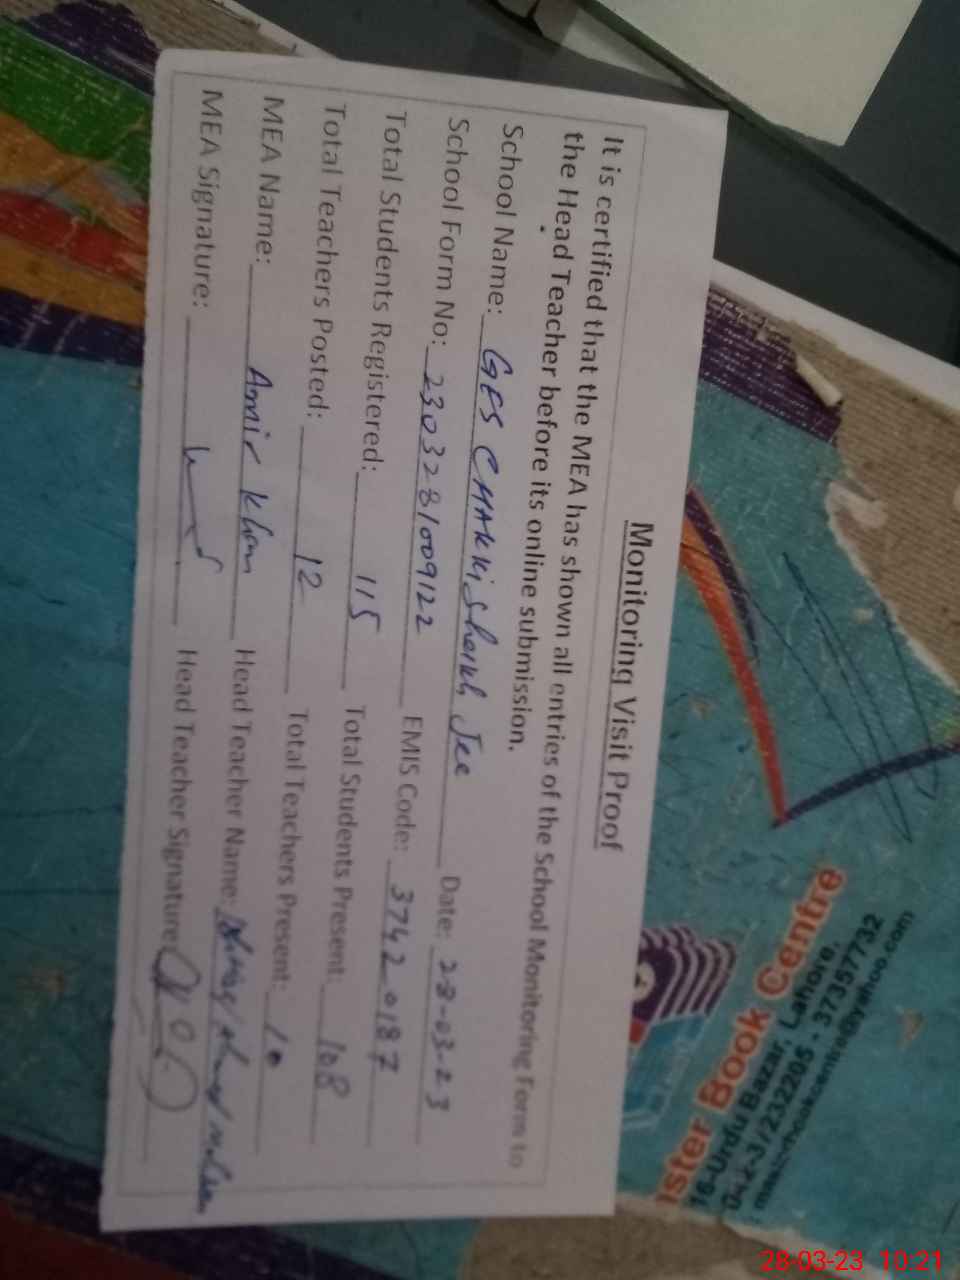 Monitoring Visit Proof
It is certified that the MEA has shown all entries of the School Monitoring Form to
the Head Teacher before its online submission.
School Name: GES CHAKKi Sheikh Jee Date: 28-03-23
School Form No: 2303281009122 EMIS Code: 37420187
Total Students Registered: 115 Total Students Present: 108
Total Teachers Posted: 12 Total Teachers Present: 10
MEA Name: Amir Khan Head Teacher Name:
MEA Signature: Head Teacher Signature:
ster Book Centre
16-Urdu Bazar, Lahore.
042-37232205 - 37357732
28-03-23 10:21